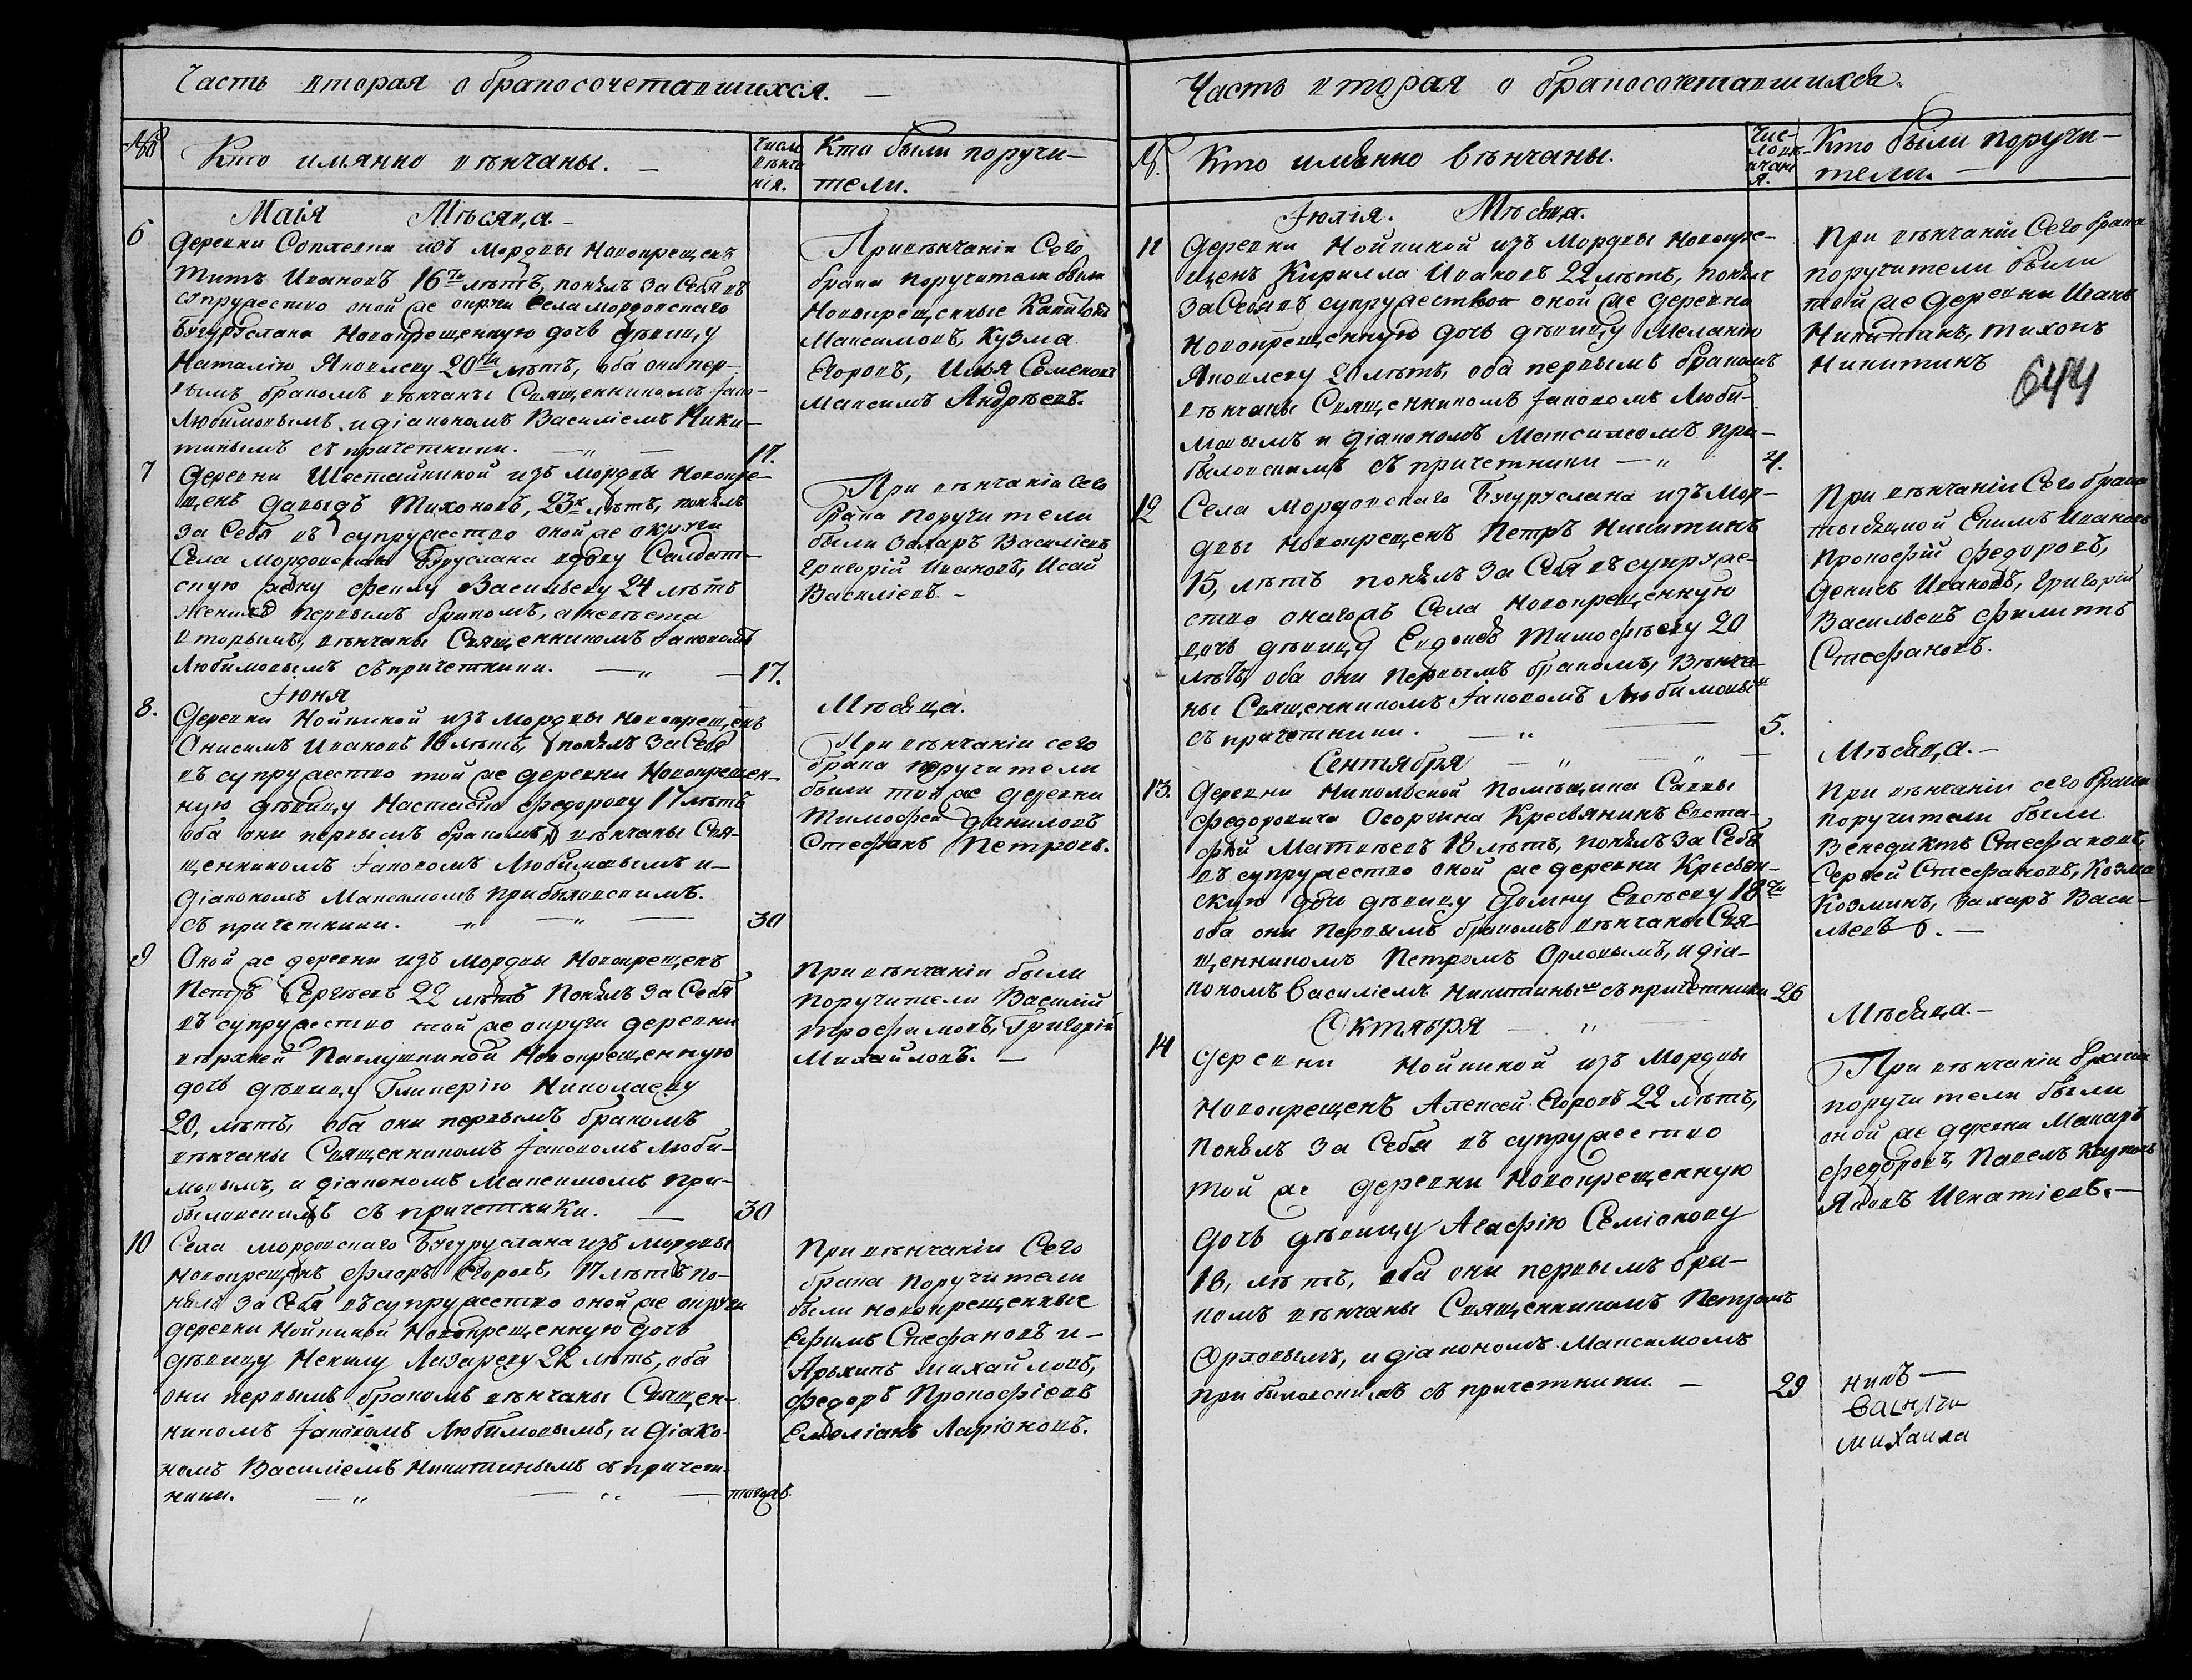 Часть вторая о бракосочетавшихся. —
№
Кто имянно вѣнчаны. —
Число
вѣнча
нія.
Кто были поручи-
тели.
Маія Мѣсяца —
6
Деревни Соплевки изъ Мордвы Новокрещенъ
Титъ Ивановъ 16ти лѣтъ, понялъ за Себя въ
супружество оной же округи Села Мордовскаго
Бугуруслана Новокрещенную дочь дѣвицу
Наталію Яковлеву 20ти лѣтъ, оба они пер-
вымъ бракомъ вѣнчаны Священникомъ Іако-
Любимовымъ и діакономъ Василіемъ Ники-
тинымъ съ причетники. — „ —
17.
Привѣнчаніи Сего
брака поручители были
Новокрещенные
Максимовъ, Кузма
Егоровъ, Илья Семеновъ
Максимъ Андрѣевъ.
7
Деревни Шестайкиной изъ Мордвы Новокре-
щенъ Давыдъ Тихоновъ, 23х лѣтъ, понялъ
за Себя въ супружество оной же округи
Села Мордовскаго Бугуруслана вдову Салдат-
скую жену Феклу Васильеву 24 лѣтъ
Жених первымъ бракомъ, а невѣста
вторымъ, вѣнчаны Священникомъ Іаковомъ
Любимовымъ съ причетники. — „ —
17.
При вѣнчаніи Сего
брака Поручители
были Захаръ Василіевъ
Григорій Ивановъ, Исай
Василіевъ. —
Іюня
Мѣсяца.
8.
Деревни Нойкиной изъ Мордвы Новокрещенъ
Онисимъ Ивановъ 18 лѣтъ, понялъ за Себя
въ супружество той же деревни Новокрещен-
ную дѣвицу Настасію Федорову 17 лѣтъ
оба они первымъ бракомъ, вѣнчаны Свя-
щенникомъ Іаковомъ Любимовымъ и —
діакономъ Максимомъ Прибыловскимъ.
съ причетники. — „ —
30
При вѣнчаніи сего
брака поручители
были той же деревни
Тимофей Даниловъ
Стефанъ Петровъ.
9
Оной же деревни изъ Мордвы Новокрещенъ
Петръ Сергѣевъ 22 лѣтъ Понялъ за Себя
въ супружество той же округи деревни
верхней Павлушкиной Новокрещенную
дочь дѣвицу Гликерію Николаеву
20, лѣтъ, оба они первымъ бракомъ
вѣнчаны Священникомъ Іаковомъ Люби-
мовымъ, и діакономъ Максимомъ При-
быловскимъ съ причетники. —
30
При вѣнчаніи были
поручители Василій
Трофимовъ, Григорій
Михайловъ. —
10
Села Мордовскаго Бугуруслана изъ Мордвы
Новокрещенъ Флоръ Егоровъ, 17 лѣтъ по-
нялъ за Себя въ супружество оной же округи
деревни Нойкиной Новокрещенную дочь
дѣвицу Ненилу Лазареву 22 лѣтъ, оба
они первымъ бракомъ вѣнчаны Священ-
никомъ Іаковомъ Любимовымъ, и діако-
номъ Василіемъ Никитинымъ съ причет-
ники. — „ — „ —
тогожъ
При вѣнчаніи Сего
брака Поручители
были новокрещенные
Ефимъ Стефановъ и —
Архипъ Михайловъ,
Федоръ Прокофіевъ
Емеліанъ Ларіоновъ.
Часть вторая о бракосочетавшихся.
№.
Кто имянно вѣнчаны.
Чис-
ло вѣ-
нчані
я.
Кто были поручи-
тели. —
Іюлія. Мѣсяца.
11
Деревни Нойкиной изъ Мордвы Новокре-
щенъ Кирилла Ивановъ 22 лѣтъ, понялъ
за Себя въ супружество оной же деревни
Новокрещенную дочь дѣвицу Меланію
Яковлеву 20 лѣтъ, оба первымъ бракомъ
вѣнчаны Священникомъ Іаковомъ Люби-
мовымъ и діакономъ Максимомъ При-
быловскимъ съ причетники — „
4.
При вѣнчаніи Сего брака
поручители были
той же деревни Иванъ
Никитинъ, Тихонъ
Никитинъ
644
12
Села Мордовскаго Бугуруслана изъ Мор-
двы Новокрещенъ Петръ Никитинъ
15, лѣтъ понялъ за Себя въ супруже-
ство онагожъ Села Новокрещенную
дочь дѣвицу Евдокею Тимофѣеву 20
лѣтъ, оба они Первымъ бракомъ, Вѣнча-
ны Священникомъ Іаковомъ Любимовым
съ причетники. — „ —
5.
При вѣнчаніи Сего брака
Екимъ Ивановъ
Прокофій Федоровъ,
Денисъ Ивановъ, Григорій
Васильевъ Филиппъ
Стефановъ.
Сентября — „ — „ —
Мѣсяца. —
13.
Деревни Никольской Помѣщика Саввы
Федоровича Осоргина Крестьянинъ Евста-
фей Матвѣевъ 18 лѣтъ, понялъ за Себя
въ супружество оной же деревни Крестьян-
скую дочь дѣвицу Домну Евсѣеву 18ти
оба они Первымъ бракомъ вѣнчаны Свя-
щенникомъ Петромъ Орловымъ, и діа-
кономъ Василіемъ Никитиным съ причетники
26
При вѣнчаніи сего брака
поручители были
Венедиктъ Стефановъ,
Сергей Стефановъ, Козма
Козминъ, Захаръ Васи-
льевъ. —
Октября — „ —
Мѣсяца. —
14
Деревни Нойкиной изъ Мордвы
Новокрещенъ Алексей Егоровъ 22 лѣтъ,
Понялъ за Себя въ супружество
той же деревни Новокрещенную
дочь дѣвицу Агафію Семіонову
18, лѣтъ, оба они первымъ бра-
комъ вѣнчаны Священникомъ Петромъ
Орловымъ, и діакономъ Максимомъ
Прибыловскимъ съ причетники. —
29
При вѣнчаніи брака
поручители были
оной же деревни Макаръ
Федоровъ, Павелъ Карповъ
Яковъ Игнатіевъ. —
никъ —
Михаила